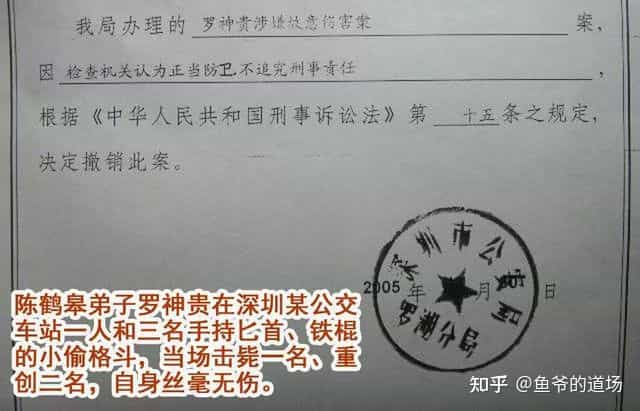 我局办理的 罗神贵涉嫌故意伤害案 案,
因 检查机关认为正当防卫,不追究刑事责任 ,
根据《中华人民共和国刑事诉讼法》第 十五 条之规定,
决定撤销此案。
深圳市公安局
2005 年 月 日
陈鹤皋弟子罗神贵在深圳某公交
车站一人和三名手持匕首、铁棍
的小偷格斗,当场击毙一名、重
创二名,自身丝毫无伤。
知乎 @鱼爷的道场